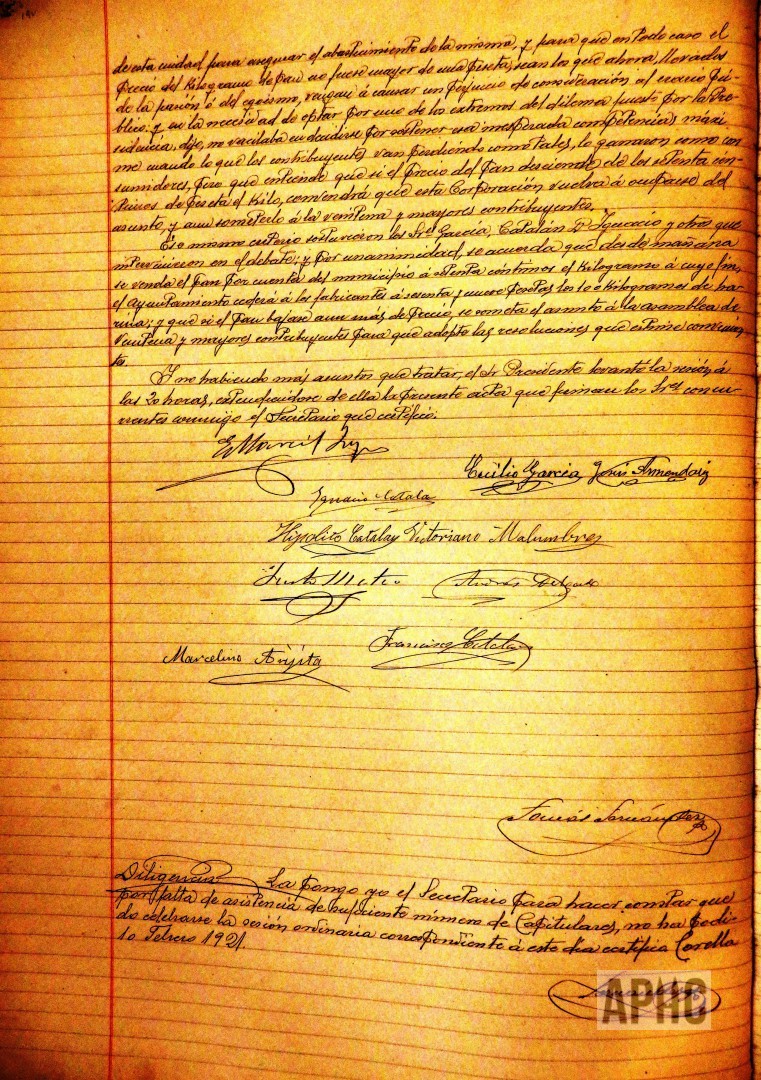 de esta ciudad para asegurar el abastecimiento de la misma, y para que en todo caso el
precio del kilogramo de pan no fuese mayor de una peseta, sean los que ahora, llevados
de la pasión ó del egoismo, vengan á causar un perjuicio de consideración al erario pú-
blico; y en la necesidad de optar por uno de los extremos del dilema puesto por la Pre-
sidencia, dijo, no vacilaba en decidirse por sostener esa inesperada competencia, maxi
me cuando lo que los contribuyentes van perdiendo como tales, lo ganaron como con
sumidores, pero que entiende que si el precio del pan desciende de los setenta cén-
timos de peseta el kilo, convendrá que esta Corporación vuelva á ocuparse del
asunto, y aun someterlo á la veintena y mayores contribuyentes.
Ese mismo criterio sostuvieron los Sres García, Catalán D. Ignacio y otros que
intervinieron en el debate; y por unanimidad, se acuerda que desde mañana
se venda el pan por cuenta del municipio á setenta céntimos el kilogramo á cuyo fin,
el Ayuntamiento cederá á los fabricantes á sesenta y nueve pesetas los 100 kilogramos de ha-
rina; y que si el pan bajase aun más de precio, se someta el asunto á la asamblea de
Veintena y mayores contribuyentes para que adopte las resoluciones que estime convenien-
tes.
Y no habiendo más asuntos que tratar, el Sr Presidente levantó la sesión á
las 20 horas, extendiéndose de ella la presente acta que firman los Sres concu-
rrentes conmigo el Secretario que certifico.
Emilio García Jesús Armendariz
Ignacio Catalá
Hipolito Catalan Victoriano Malumbres
Justo Mateo Andrés Delgado
Marcelino Arijita Francisco Catalan
Tomás Fernández
Diligencia La pongo yo el Secretario para hacer constar que
por falta de asistencia de suficiente número de Capitulares, no ha podi-
do celebrarse la sesión ordinaria correspondiente á este día certifico Corella
10 Febrero 1921.
APHC